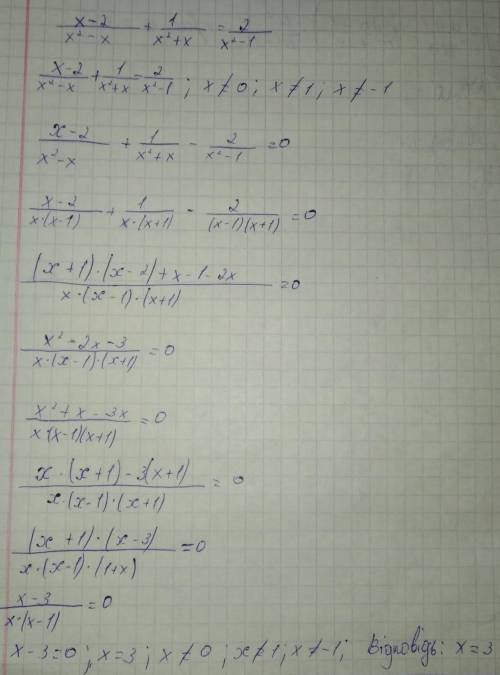 (x-2)/(x²-x) + 1/(x²+x) = 2/(x²-1)
(x-2)/(x²-x) + 1/(x²+x) = 2/(x²-1) ; x≠0 ; x≠1 ; x≠-1
(x-2)/(x²-x) + 1/(x²+x) - 2/(x²-1) = 0
(x-2)/(x·(x-1)) + 1/(x·(x+1)) - 2/((x-1)(x+1)) = 0
((x+1)·(x-2)+x-1-2x)/(x·(x-1)·(x+1)) = 0
(x²-2x-3)/(x·(x-1)·(x+1)) = 0
(x²+x-3x)/(x·(x-1)(x+1)) = 0
(x·(x+1)-3(x+1))/(x·(x-1)·(x+1)) = 0
((x+1)·(x-3))/(x·(x-1)·(1+x)) = 0
(x-3)/(x·(x-1)) = 0
x-3=0 ; x=3 ; x≠0 ; x≠1 ; x≠-1 ; Відповідь: x=3